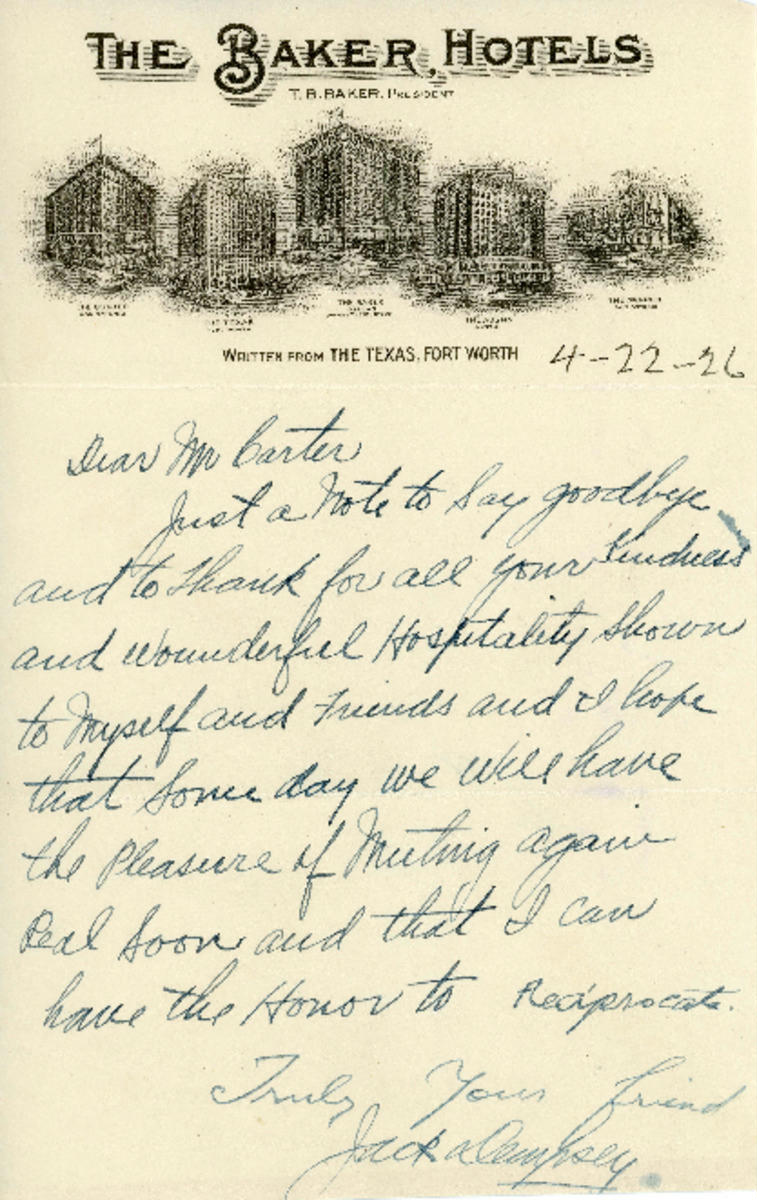 THE BAKER HOTELS
T. B. BAKER, PRESIDENT
THE BAKER
THE TEXAS
WRITTEN FROM THE TEXAS, FORT WORTH 4-22-26
Dear Mr Carter
Just a Note to Say goodbye
and to thank for all your kindness
and wounderful Hospitality shown
to Myself and Friends and I hope
that Some day we will have
the Pleasure of Meeting again
Real Soon and that I can
have the Honor to Reciprocate.
Truly Your friend
Jack Dempsey.